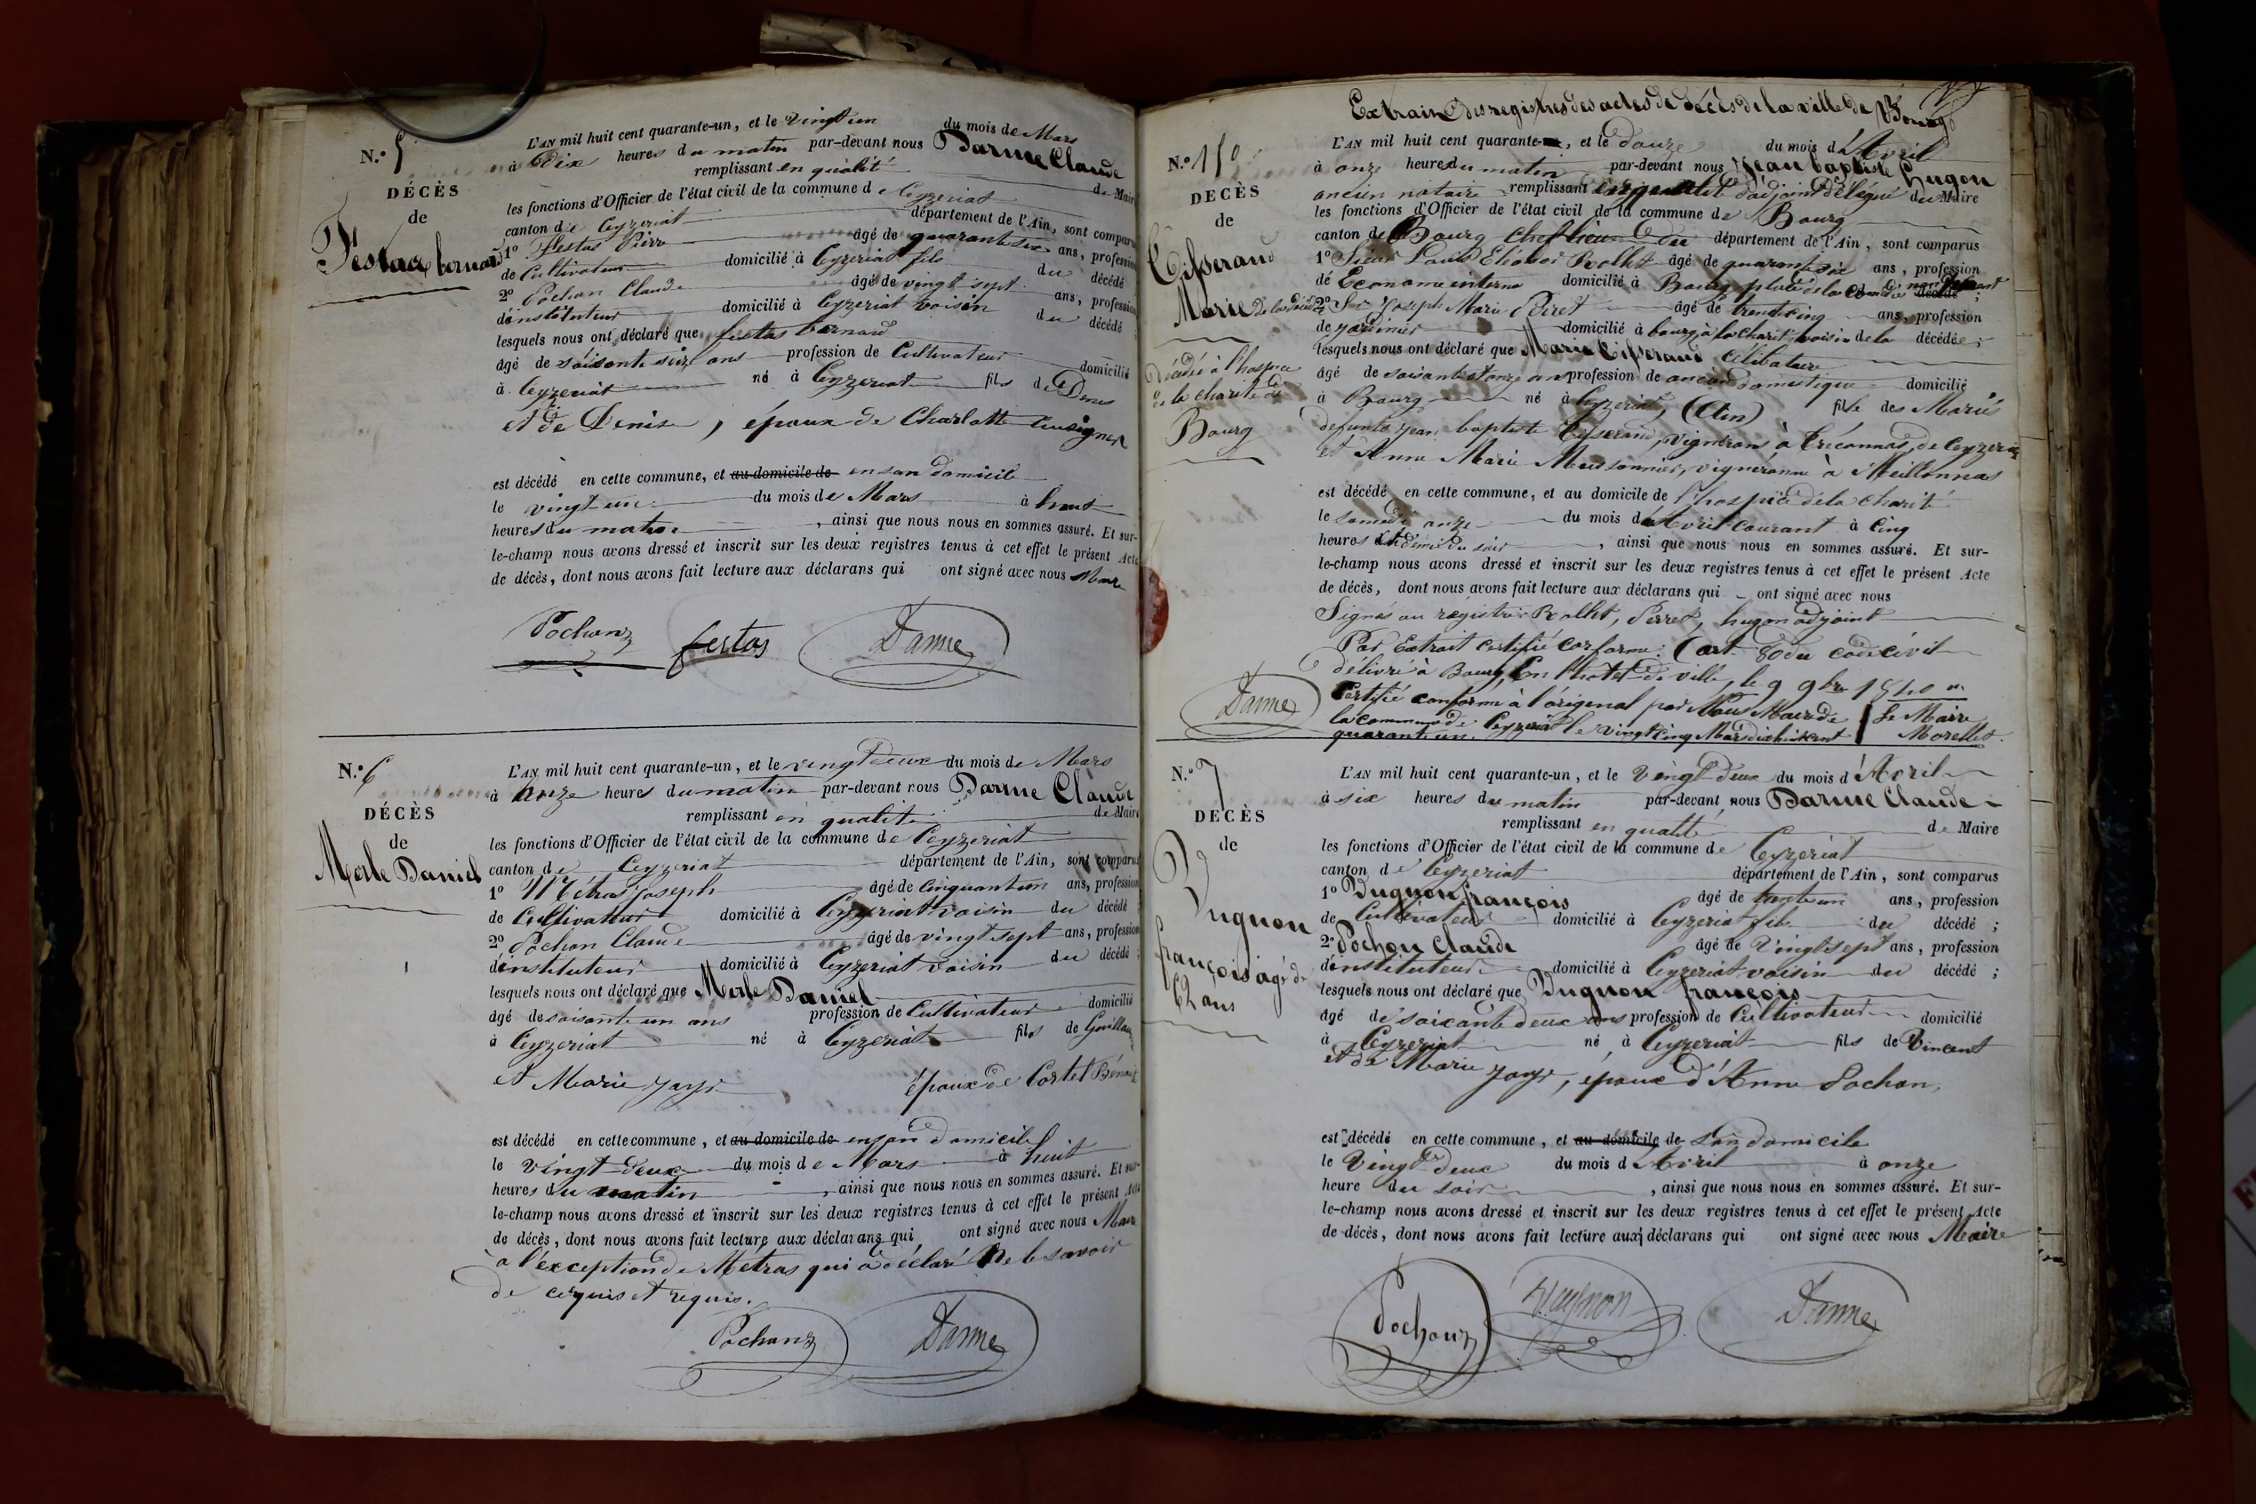 N.° 5
DÉCÈS
de
Festaz bernard
L'AN mil huit cent quarante-un, et le vingt un du mois de Mars
à Dix heures du matin par-devant nous Darme Claude
remplissant en qualité de Maire
les fonctions d'Officier de l'état civil de la commune de Ceyzeriat
canton de Ceyzeriat département de l'Ain, sont comparus
1° festas Pierre âgé de quarante six ans, profession
de Cultivateur domicilié à Ceyzeriat fils du décédé
2° Pochon Claude âgé de vingt sept ans, profession
d'instituteur domicilié à Ceyzeriat voisin du décédé ;
lesquels nous ont déclaré que festas bernard
âgé de soixante seize ans profession de Cultivateur domicilié
à Ceyzeriat né à Ceyzeriat fils de Denis
et de Denise, époux de Charlotte
est décédé en cette commune, et au domicile de en son domicile
le vingt un du mois de Mars à huit
heures du matin, ainsi que nous nous en sommes assuré. Et sur-
le-champ nous avons dressé et inscrit sur les deux registres tenus à cet effet le présent Acte
de décès, dont nous avons fait lecture aux déclarans qui ont signé avec nous Maire
Pochon festas Darme
N.° 6
DÉCÈS
de
Merle Daniel
L'AN mil huit cent quarante-un, et le vingt deux du mois de Mars
à onze heures du matin par-devant nous Darme Claude
remplissant en qualité de Maire
les fonctions d'Officier de l'état civil de la commune de Ceyzeriat
canton de Ceyzeriat département de l'Ain, sont comparus
1° Métras joseph âgé de cinquante un ans, profession
de Cultivateur domicilié à Ceyzeriat voisin du décédé ;
2° Pochon Claude âgé de vingt sept ans, profession
d'instituteur domicilié à Ceyzeriat voisin du décédé ;
lesquels nous ont déclaré que Merle Daniel
âgé de soixante un ans profession de Cultivateur domicilié
à Ceyzeriat né à Ceyzeriat fils de Guillaume
et Marie jayr époux de Cortet
est décédé en cette commune, et au domicile de en son domicile
le vingt deux du mois de Mars à huit
heures du matin, ainsi que nous nous en sommes assuré. Et sur-
le-champ nous avons dressé et inscrit sur les deux registres tenus à cet effet le présent Acte
de décès, dont nous avons fait lecture aux déclarans qui ont signé avec nous Maire
à l'exception de Métras qui a déclaré Ne le savoir
de ce quis et requis.
Pochon Darme
Extrait des registres des actes de décès de la ville de Bourg
N.°
DÉCÈS
de
Tisserand
Marie
Décédée à l'hospice
de la charité de
Bourg
L'AN mil huit cent quarante, et le douze du mois d'Avril
à onze heures du matin par-devant nous Jean baptiste hugon
ancien notaire remplissant en qualité d'adjoint délégué du Maire
les fonctions d'Officier de l'état civil de la commune de Bourg
canton de Bourg chef lieu du département de l'Ain, sont comparus
1° Sieur Louis Rollet âgé de quarante six ans, profession
dé Econome interne domicilié à Bourg place de la
2° Sr joseph Marie Perret âgé de trente cinq ans, profession
de jardinier domicilié à bourg à la charité voisin de la décédée ;
lesquels nous ont déclaré que Marie Tisserand Célibataire
âgé de soixante et onze ans profession de ancien domestique domicilié
à Bourg né à Ceyzeriat (Ain) fille des Mariés
defunts jean baptiste Tisserand, vigneron à de Ceyzeriat
et Anne Marie vigneronne à Meillonnas
est décédé en cette commune, et au domicile de l'hospice de la charité
le samedi onze du mois d'Avril courant à Cinq
heures et demie du soir, ainsi que nous nous en sommes assuré. Et sur-
le-champ nous avons dressé et inscrit sur les deux registres tenus à cet effet le présent Acte
de décès, dont nous avons fait lecture aux déclarans qui ont signé avec nous
Signés au registre Rollet, Perret, hugon adjoint
Par Extrait certifié conforme : (art. 80 du code civil
délivré à Bourg, En l'hotel de ville, le 9 9bre 1840
Certifié conforme à l'original par Nous Maire de Le Maire
la commune de Ceyzeriat le vingt cinq Mars dix huit cent Morellet.
quarante un.
Darme
N.° 7
DÉCÈS
de
Dugnon
françois âgé de
62 ans
L'AN mil huit cent quarante-un, et le vingt deux du mois d'Avril
à six heures du matin par-devant nous Darme Claude
remplissant en qualité de Maire
les fonctions d'Officier de l'état civil de la commune de Ceyzeriat
canton de Ceyzeriat département de l'Ain, sont comparus
1° Dugnon françois âgé de trente un ans, profession
de Cultivateur domicilié à Ceyzeriat fils du décédé ;
2° Pochon Claude âgé de vingt sept ans, profession
d'instituteur domicilié à Ceyzeriat voisin du décédé ;
lesquels nous ont déclaré que Dugnon françois
âgé de soixante deux ans profession de Cultivateur domicilié
à Ceyzeriat né à Ceyzeriat fils de Vincent
et de Marie jayr, époux d'Anne Pochon,
est décédé en cette commune, et au domicile de son domicile
le Vingt deux du mois d'Avril à onze
heure du soir, ainsi que nous nous en sommes assuré. Et sur-
le-champ nous avons dressé et inscrit sur les deux registres tenus à cet effet le présent Acte
de décès, dont nous avons fait lecture aux déclarans qui ont signé avec nous Maire
Pochon Dugnon Darme